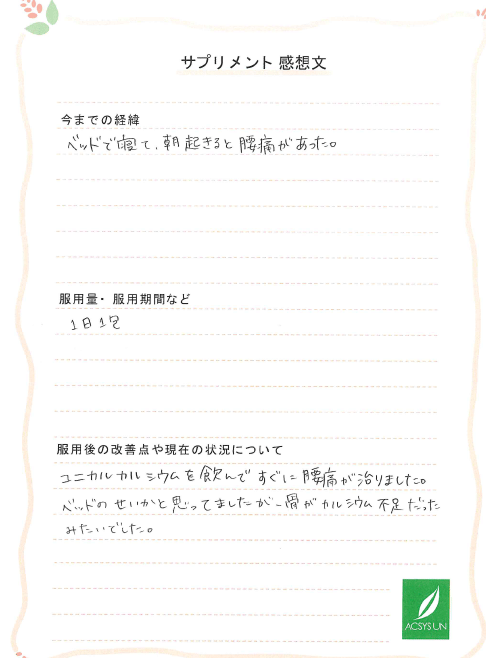 サプリメント 感想文
今までの経緯
ベッドで寝て、朝起きると腰痛があった。
服用量・服用期間など
1日1包
服用後の改善点や現在の状況について
ユニカルカルシウムを飲んですぐに腰痛が治りました。
ベッドのせいかと思ってましたが、骨がカルシウム不足だった
みたいでした。
ACSYSUN